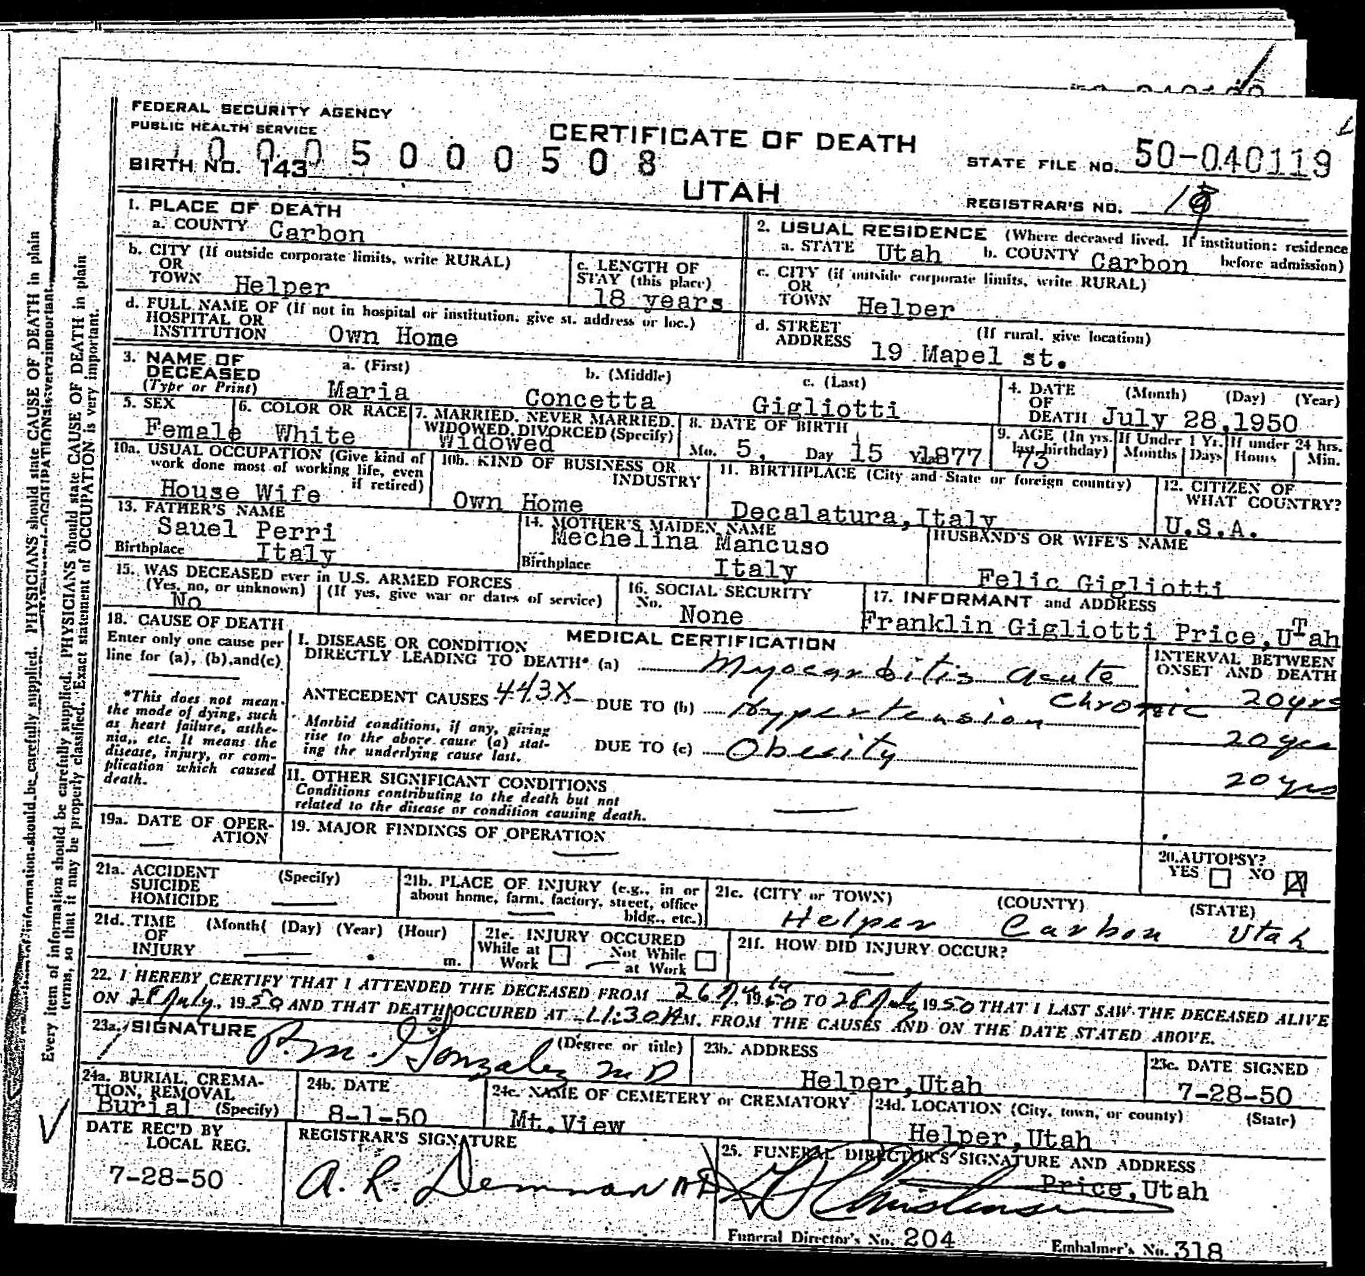 FEDERAL SECURITY AGENCY
PUBLIC HEALTH SERVICE
CERTIFICATE OF DEATH
STATE FILE NO. 50-040119
BIRTH NO. 143
0 0 0 5 0 0 0 5 0 8
UTAH
REGISTRAR'S NO.
1. PLACE OF DEATH
a. COUNTY Carbon
2. USUAL RESIDENCE (Where deceased lived. If institution: residence before admission)
a. STATE Utah b. COUNTY Carbon
b. CITY (If outside corporate limits, write RURAL)
OR
TOWN Helper
c. LENGTH OF
STAY (this place)
18 years
c. CITY (if outside corporate limits, write RURAL)
OR
TOWN Helper
d. FULL NAME OF (If not in hospital or institution, give st. address or loc.)
HOSPITAL OR
INSTITUTION Own Home
d. STREET (If rural, give location)
ADDRESS 19 Mapel st.
3. NAME OF
DECEASED
(Type or Print)
a. (First) b. (Middle) c. (Last)
Maria Concetta Gigliotti
4. DATE (Month) (Day) (Year)
OF
DEATH July 28,1950
5. SEX
Female
6. COLOR OR RACE
White
7. MARRIED, NEVER MARRIED,
WIDOWED, DIVORCED (Specify)
Widowed
8. DATE OF BIRTH
Mo. 5, Day 15 1877
9. AGE (In yrs. birthday)
73
If Under 1 Yr.
Months Days
If under 24 hrs.
Hours Min.
10a. USUAL OCCUPATION (Give kind of
work done most of working life, even
if retired)
House Wife
10b. KIND OF BUSINESS OR
INDUSTRY
Own Home
11. BIRTHPLACE (City and State or foreign country)
Decalatura,Italy
12. CITIZEN OF
WHAT COUNTRY?
U.S.A.
13. FATHER'S NAME
Sauel Perri
Birthplace Italy
14. MOTHER'S MAIDEN NAME
Mechelina Mancuso
Birthplace Italy
HUSBAND'S OR WIFE'S NAME
Felic Gigliotti
15. WAS DECEASED ever in U.S. ARMED FORCES
(Yes, no, or unknown) (If yes, give war or dates of service)
No
16. SOCIAL SECURITY
No. None
17. INFORMANT and ADDRESS
Franklin Gigliotti Price,UTah
18. CAUSE OF DEATH
Enter only one cause per
line for (a), (b),and(c)
*This does not mean
the mode of dying, such
as heart failure, asthe-
nia,, etc. It means the
disease, injury, or com-
plication which caused
death.
MEDICAL CERTIFICATION
I. DISEASE OR CONDITION
DIRECTLY LEADING TO DEATH* (a) Myocarditis acute
Chronic
ANTECEDENT CAUSES 443X DUE TO (b) Hypertension
Morbid conditions, if any, giving
rise to the above cause (a) stat-
ing the underlying cause last.
DUE TO (c) Obesity
INTERVAL BETWEEN
ONSET AND DEATH
20yrs
20yrs
20yrs
II. OTHER SIGNIFICANT CONDITIONS
Conditions contributing to the death but not
related to the disease or condition causing death.
19a. DATE OF OPER-
ATION
19. MAJOR FINDINGS OF OPERATION
20. AUTOPSY?
YES NO X
21a. ACCIDENT (Specify)
SUICIDE
HOMICIDE
21b. PLACE OF INJURY (e.g., in or
about home, farm, factory, street, office
bldg., etc.)
21c. (CITY or TOWN) (COUNTY) (STATE)
Helper Carbon Utah
21d. TIME (Month( (Day) (Year) (Hour)
OF
INJURY m.
21e. INJURY OCCURED
While at Not While
Work at Work
21f. HOW DID INJURY OCCUR?
22. I HEREBY CERTIFY THAT I ATTENDED THE DECEASED FROM 26 1950 TO 28 July 1950 THAT I LAST SAW THE DECEASED ALIVE
ON 28 July, 1950 AND THAT DEATH OCCURED AT 11:30 AM. FROM THE CAUSES AND ON THE DATE STATED ABOVE.
23a. SIGNATURE (Degree or title)
P.M. Gonzalez MD
23b. ADDRESS
Helper,Utah
23c. DATE SIGNED
7-28-50
24a. BURIAL, CREMA-
TION, REMOVAL
Burial (Specify)
24b. DATE
8-1-50
24c. NAME OF CEMETERY or CREMATORY
Mt.View
24d. LOCATION (City, town, or county) (State)
Helper,Utah
DATE REC'D BY
LOCAL REG.
7-28-50
REGISTRAR'S SIGNATURE
A. R. Demman MD
25. FUNERAL DIRECTOR'S SIGNATURE AND ADDRESS
Christensen
Price,Utah
Funeral Director's No. 204 Embalmer's No. 318
Every item of information should be carefully supplied. PHYSICIANS should state CAUSE OF DEATH in plain
terms, so that it may be properly classified. Exact statement of OCCUPATION is very important.